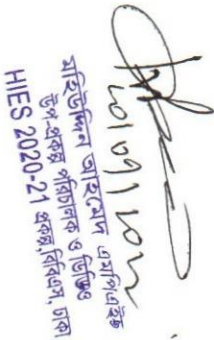 মহিউদ্দিন আহমেদ এমপিএইচ
উপ-প্রকল্প পরিচালক ও ডিডিও
HIES 2020-21 প্রকল্প, বিবিএস, ঢাকা